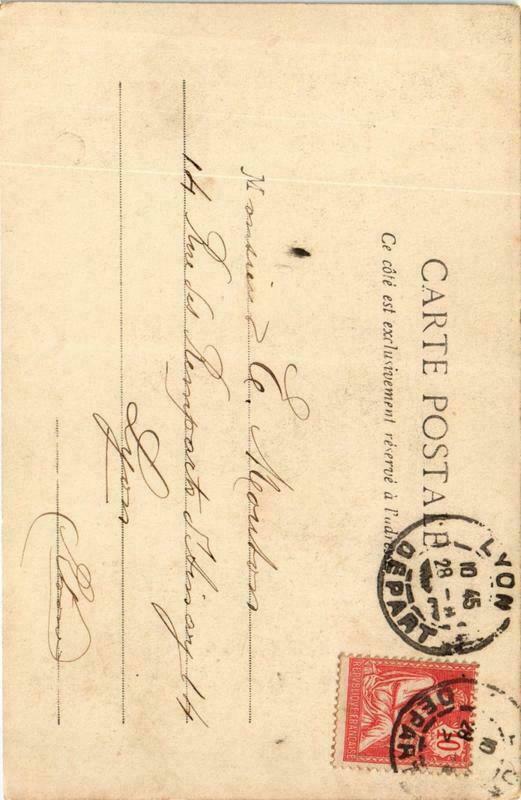 CARTE POSTALE
Ce côté est exclusivement réservé à l'adre
LYON
10 45
28
DEPART
10
RÉPUBLIQUE FRANÇAISE
28
DEPART
Monsieur C. Mouton
14 Rue des Remparts d'Ainay 14
Lyon